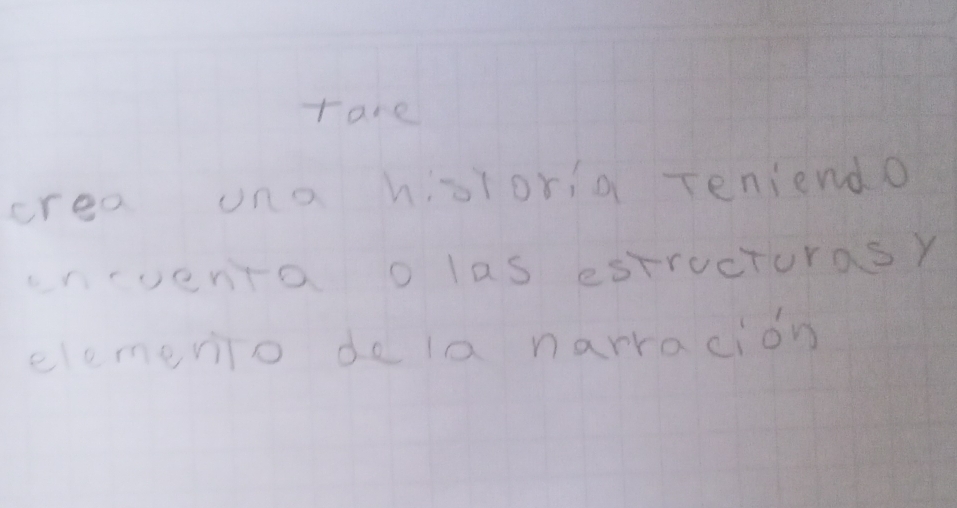 tare
crea una historia teniendo
encuenta o las estructuras y
elemento de la narración